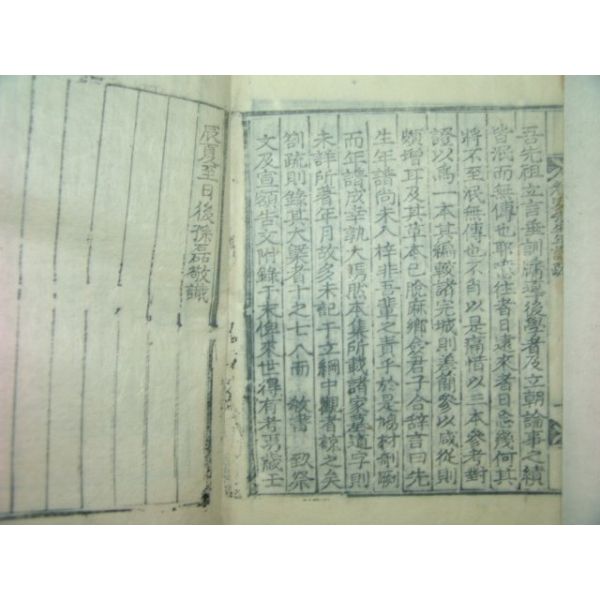 吾先祖立言垂訓啓導後學者及立朝論事之績
皆泯而無傳也耶噫往者日遠來者日忘幾何其
將不至泯無傳也不肖以是痛惜以三本參考對
證以爲一本其編載諸完城則善簡參以咸從則
頗增耳及其草本已脫麻鄕僉君子合辭言曰先
生年譜尚未入梓非吾輩之責乎於是鳩材剞劂
而年譜成幸孰大焉然本集所載諸家墓道字則
未詳所著年月故多未記于立綱中觀者諒之矣
劄疏則錄其大槩者十之七八而 敎書 致祭
文及宣額告文附錄于末俾來世得有考焉歲壬
辰夏至日後孫磊敬識